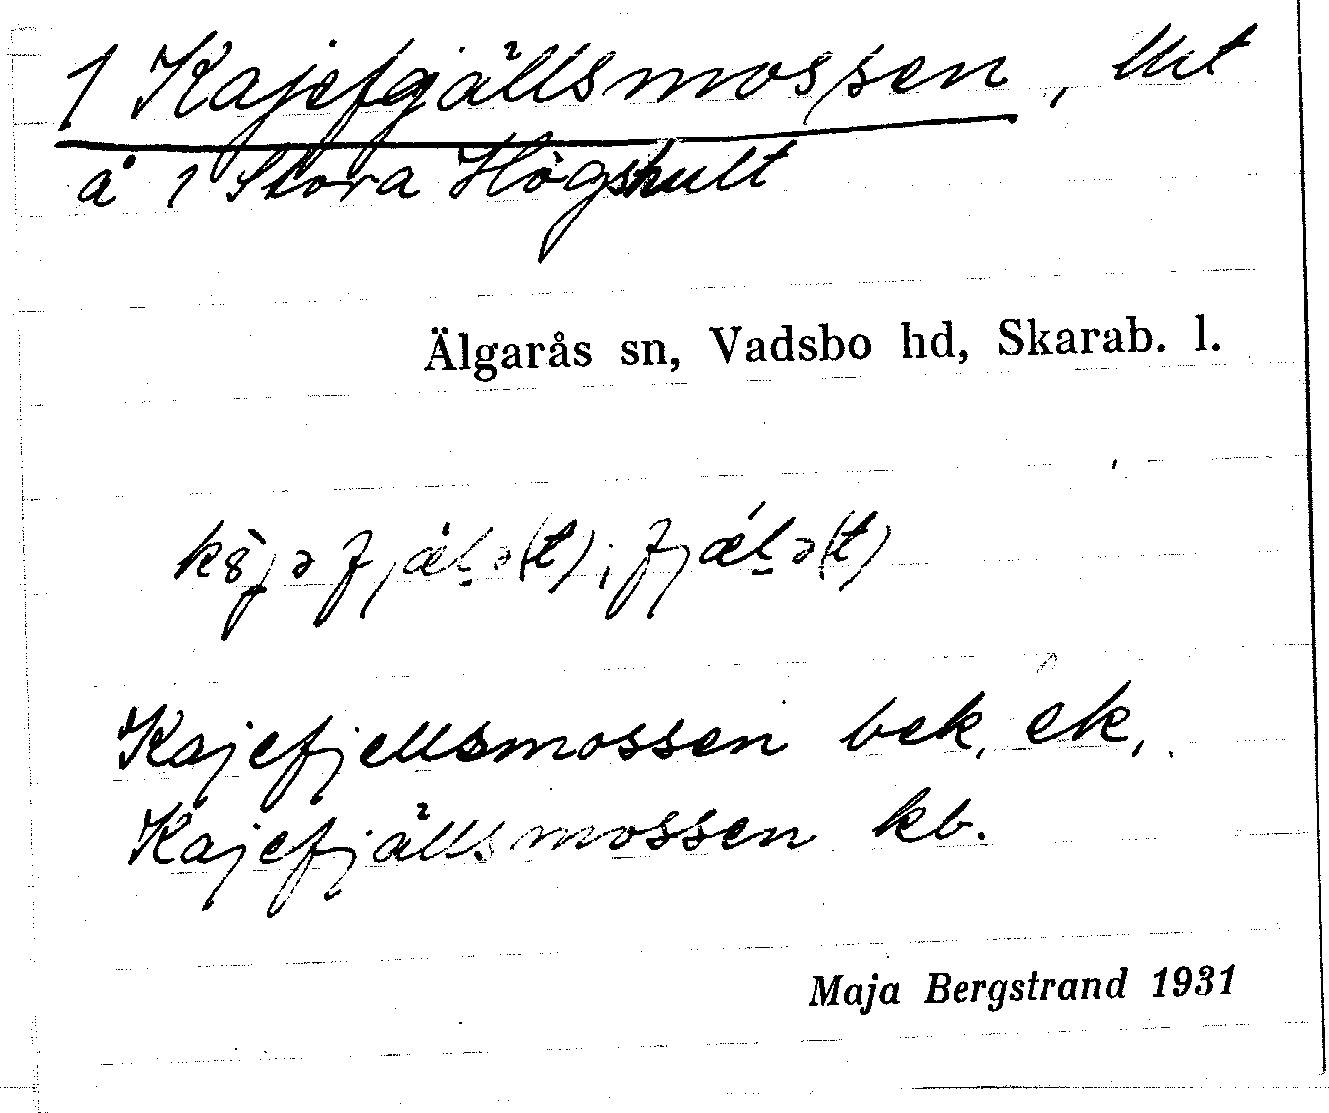 1 Kajefjällsmossen, lht
å 1 Stora Högshult
Älgarås sn, Vadsbo hd, Skarab. l.
Kajefjellsmossen bek. ek.
Kajefjällsmossen kb.
Maja Bergstrand 1931